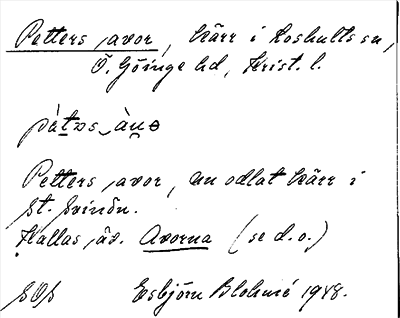 Petters avor, kärr i Loshults sn,
Ö. Göinge hd, Krist. l.
Petters avor, nu odlat kärr i
St. Svindn.
Kallas äv. Avorna (se d.o.)
SOS Esbjörn Blohmé 1948.